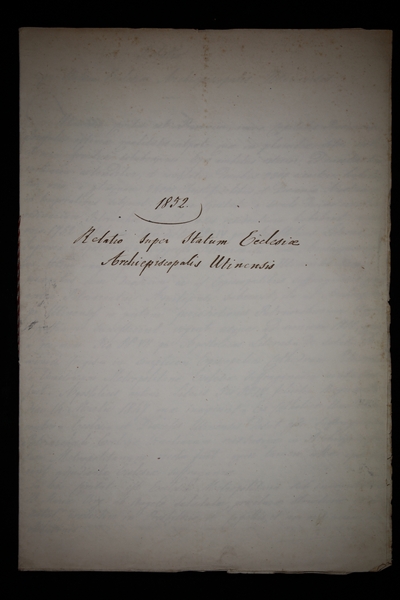 1852.
Relatio super Statum Ecclesiæ
Archiepiscopalis Utinensis